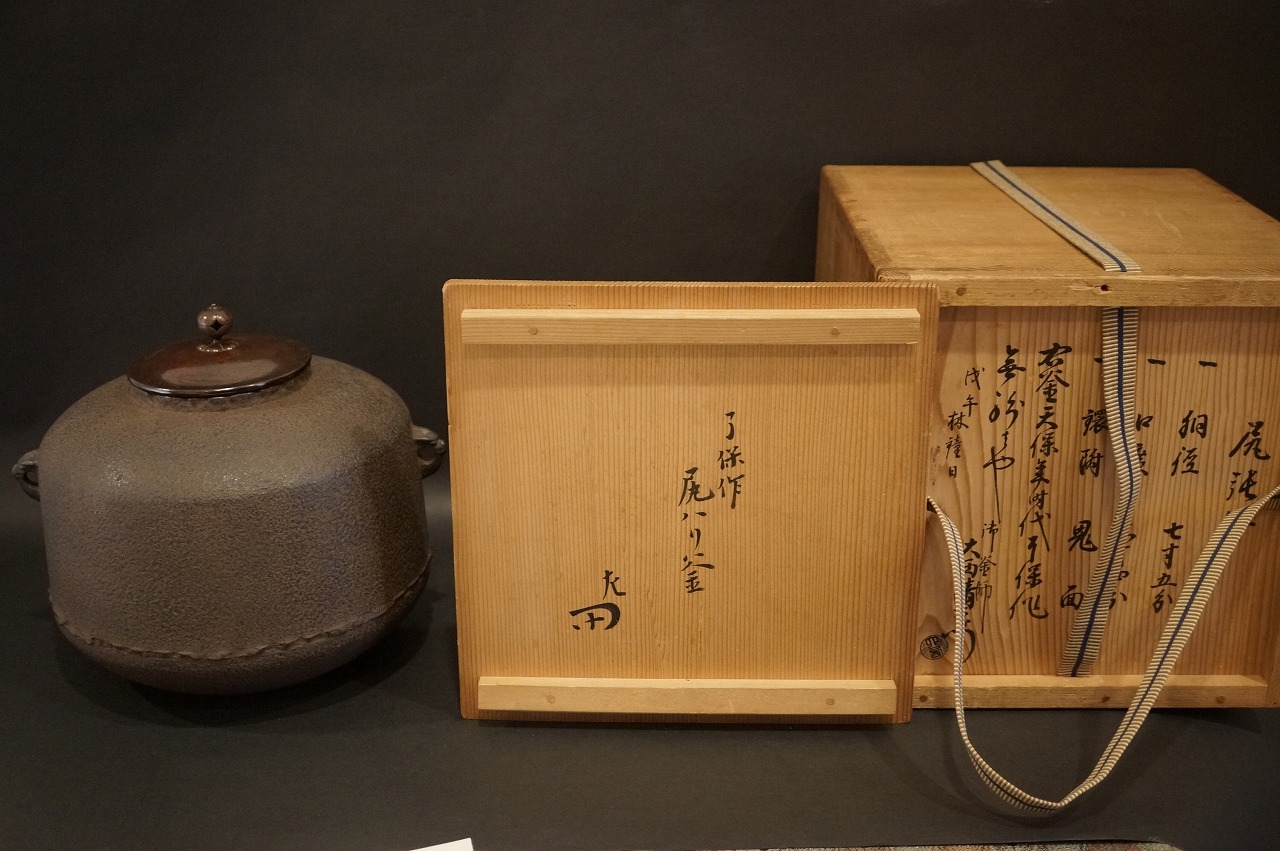 了保作
尻ハリ釜
左
尻張
一 胴径 七寸五分
一 口
一 鐶附 鬼面
右釜天保年時代了保作
無紛もの也
戊午林鐘日
御釜師
大西清